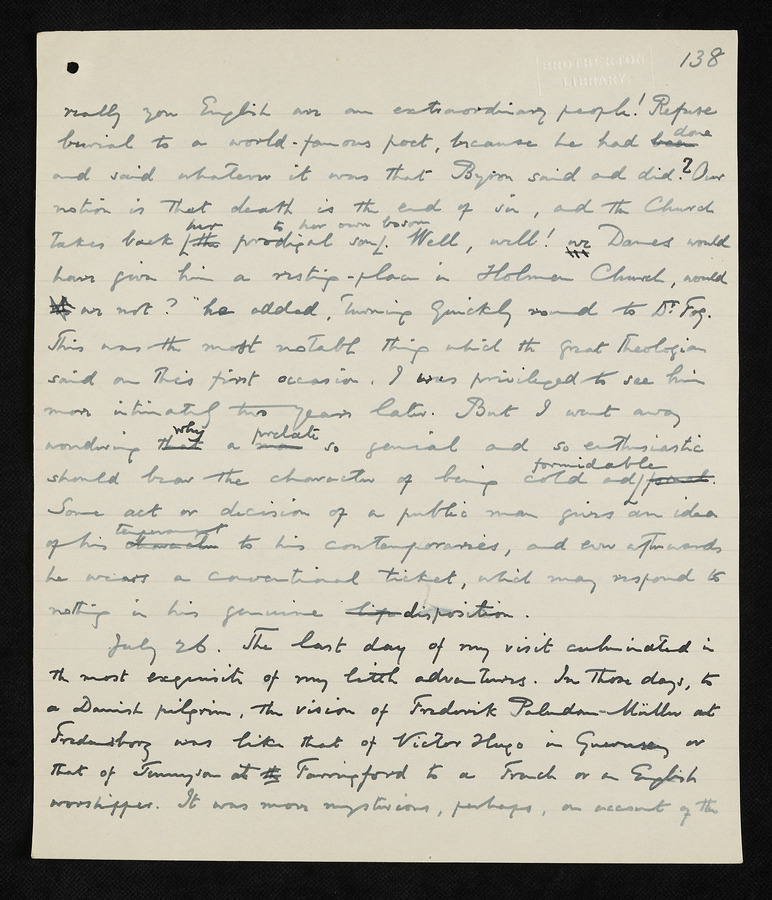 BROTHERTON LIBRARY
138
really you English are an extraordinary people! Refuse
burial to a world-famous poet, because he had been done
and said whatever it was that Byron said and did? Our
notion is that death is the end of sin, and the Church
her to her own bosom
takes back the prodigal son. Well, well! we Danes would
have given him a resting-place in Holmen Church, would
we not?" he added, turning quickly round to Dr. Fog.
This was the most notable thing which the great theologian
said on this first occasion. I was privileged to see him
more intimately two years later. But I went away
why prelate
wondering that a man so genial and so enthusiastic
formidable
should bear the character of being cold and formal.
Some act or decision of a public man gives an idea
temperament
of his character to his contemporaries, and ever afterwards
he wears a conventional ticket, which may respond to
nothing in his genuine disposition.
July 26. The last day of my visit culminated in
the most exquisite of my little adventures. In those days, to
a Danish pilgrim, the vision of Frederik Paludan-Müller at
Fredensborg was like that of Victor Hugo in Guernsey or
that of Tennyson at Farringford to a French or an English
worshipper. It was more mysterious, perhaps, on account of the